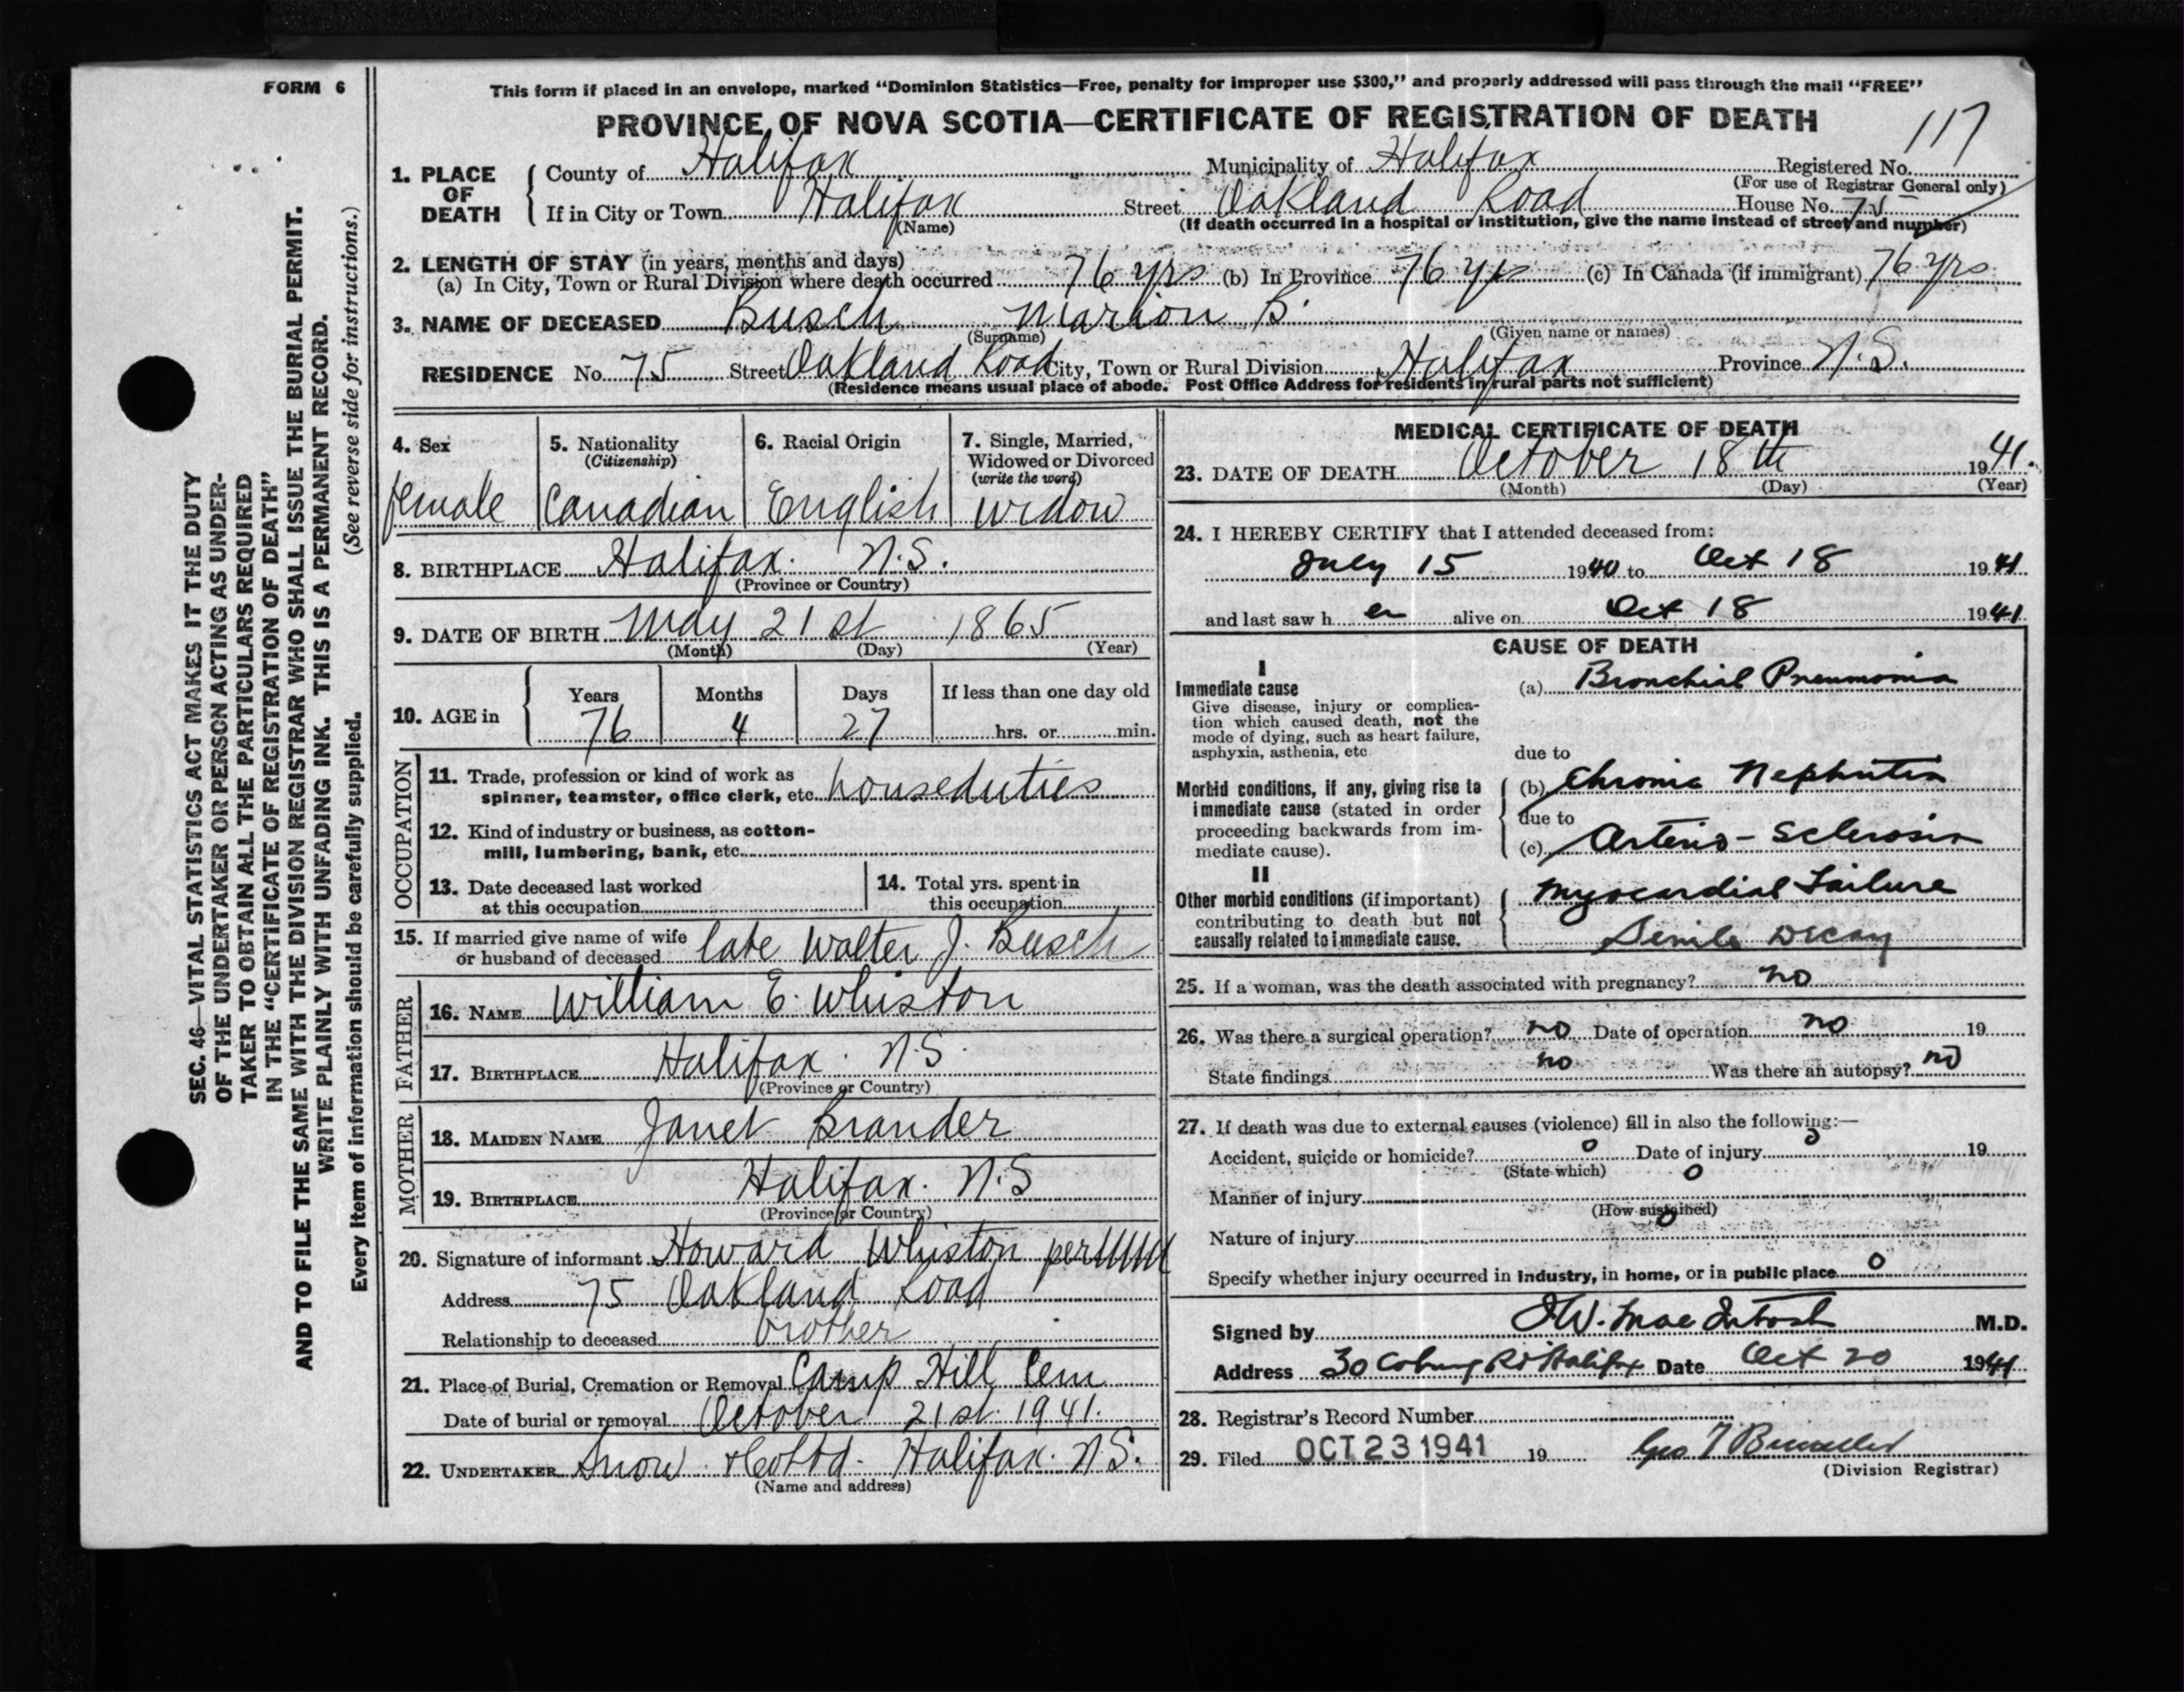 FORM 6
This form if placed in an envelope, marked "Dominion Statistics—Free, penalty for improper use $300," and properly addressed will pass through the mail "FREE"
PROVINCE OF NOVA SCOTIA—CERTIFICATE OF REGISTRATION OF DEATH
117
1. PLACE OF DEATH
County of Halifax Municipality of Halifax Registered No.
(For use of Registrar General only)
If in City or Town Halifax Street Oakland Road House No. 75
(Name) (If death occurred in a hospital or institution, give the name instead of street and number)
2. LENGTH OF STAY (in years, months and days)
(a) In City, Town or Rural Division where death occurred 76 yrs (b) In Province 76 yrs (c) In Canada (if immigrant) 76 yrs
3. NAME OF DECEASED Busch Marion B
(Surname) (Given name or names)
RESIDENCE No. 75 Street Oakland Road City, Town or Rural Division Halifax Province N.S.
(Residence means usual place of abode. Post Office Address for residents in rural parts not sufficient)
4. Sex
female
5. Nationality
(Citizenship)
Canadian
6. Racial Origin
English
7. Single, Married,
Widowed or Divorced
(write the word)
widow
8. BIRTHPLACE Halifax. N.S.
(Province or Country)
9. DATE OF BIRTH May 21st 1865
(Month) (Day) (Year)
10. AGE in
Years Months Days If less than one day old
76 4 27 hrs. or min.
OCCUPATION
11. Trade, profession or kind of work as
spinner, teamster, office clerk, etc. houseduties
12. Kind of industry or business, as cotton-
mill, lumbering, bank, etc.
13. Date deceased last worked
at this occupation
14. Total yrs. spent in
this occupation
15. If married give name of wife
or husband of deceased late Walter J. Busch
FATHER
16. NAME William E. Whiston
17. BIRTHPLACE Halifax. N.S.
(Province or Country)
MOTHER
18. MAIDEN NAME Janet Brander
19. BIRTHPLACE Halifax. N.S
(Province or Country)
20. Signature of informant Howard Whiston per
Address 75 Oakland Road
Relationship to deceased brother
21. Place of Burial, Cremation or Removal Camp Hill Cem
Date of burial or removal October 21st 1941.
22. UNDERTAKER Snow & Co Ltd. Halifax. N.S.
(Name and address)
MEDICAL CERTIFICATE OF DEATH
23. DATE OF DEATH October 18th 1941.
(Month) (Day) (Year)
24. I HEREBY CERTIFY that I attended deceased from:
July 15 1940 to Oct 18 1941
and last saw h er alive on Oct 18 1941
CAUSE OF DEATH
I
Immediate cause
Give disease, injury or complica-
tion which caused death, not the
mode of dying, such as heart failure,
asphyxia, asthenia, etc.
(a) Bronchial Pneumonia
due to
Morbid conditions, if any, giving rise to
immediate cause (stated in order
proceeding backwards from im-
mediate cause).
(b) Chronic Nephritis
due to
(c) Arterio-Sclerosis
II
Other morbid conditions (if important)
contributing to death but not
causally related to immediate cause.
Myocardial Failure
Senile Decay
25. If a woman, was the death associated with pregnancy? no
26. Was there a surgical operation? no Date of operation no 19
State findings no Was there an autopsy? no
27. If death was due to external causes (violence) fill in also the following:—
Accident, suicide or homicide? 0 Date of injury 0 19
(State which)
Manner of injury 0
(How sustained)
Nature of injury 0
Specify whether injury occurred in industry, in home, or in public place 0
Signed by W. MacIntosh M.D.
Address 30 Coburg Rd Halifax Date Oct 20 1941
28. Registrar's Record Number
29. Filed OCT 23 1941 19
(Division Registrar)
SEC. 46—VITAL STATISTICS ACT MAKES IT THE DUTY
OF THE UNDERTAKER OR PERSON ACTING AS UNDER-
TAKER TO OBTAIN ALL THE PARTICULARS REQUIRED
IN THE "CERTIFICATE OF REGISTRATION OF DEATH"
AND TO FILE THE SAME WITH THE DIVISION REGISTRAR WHO SHALL ISSUE THE BURIAL PERMIT.
WRITE PLAINLY WITH UNFADING INK. THIS IS A PERMANENT RECORD.
Every item of information should be carefully supplied. (See reverse side for instructions.)